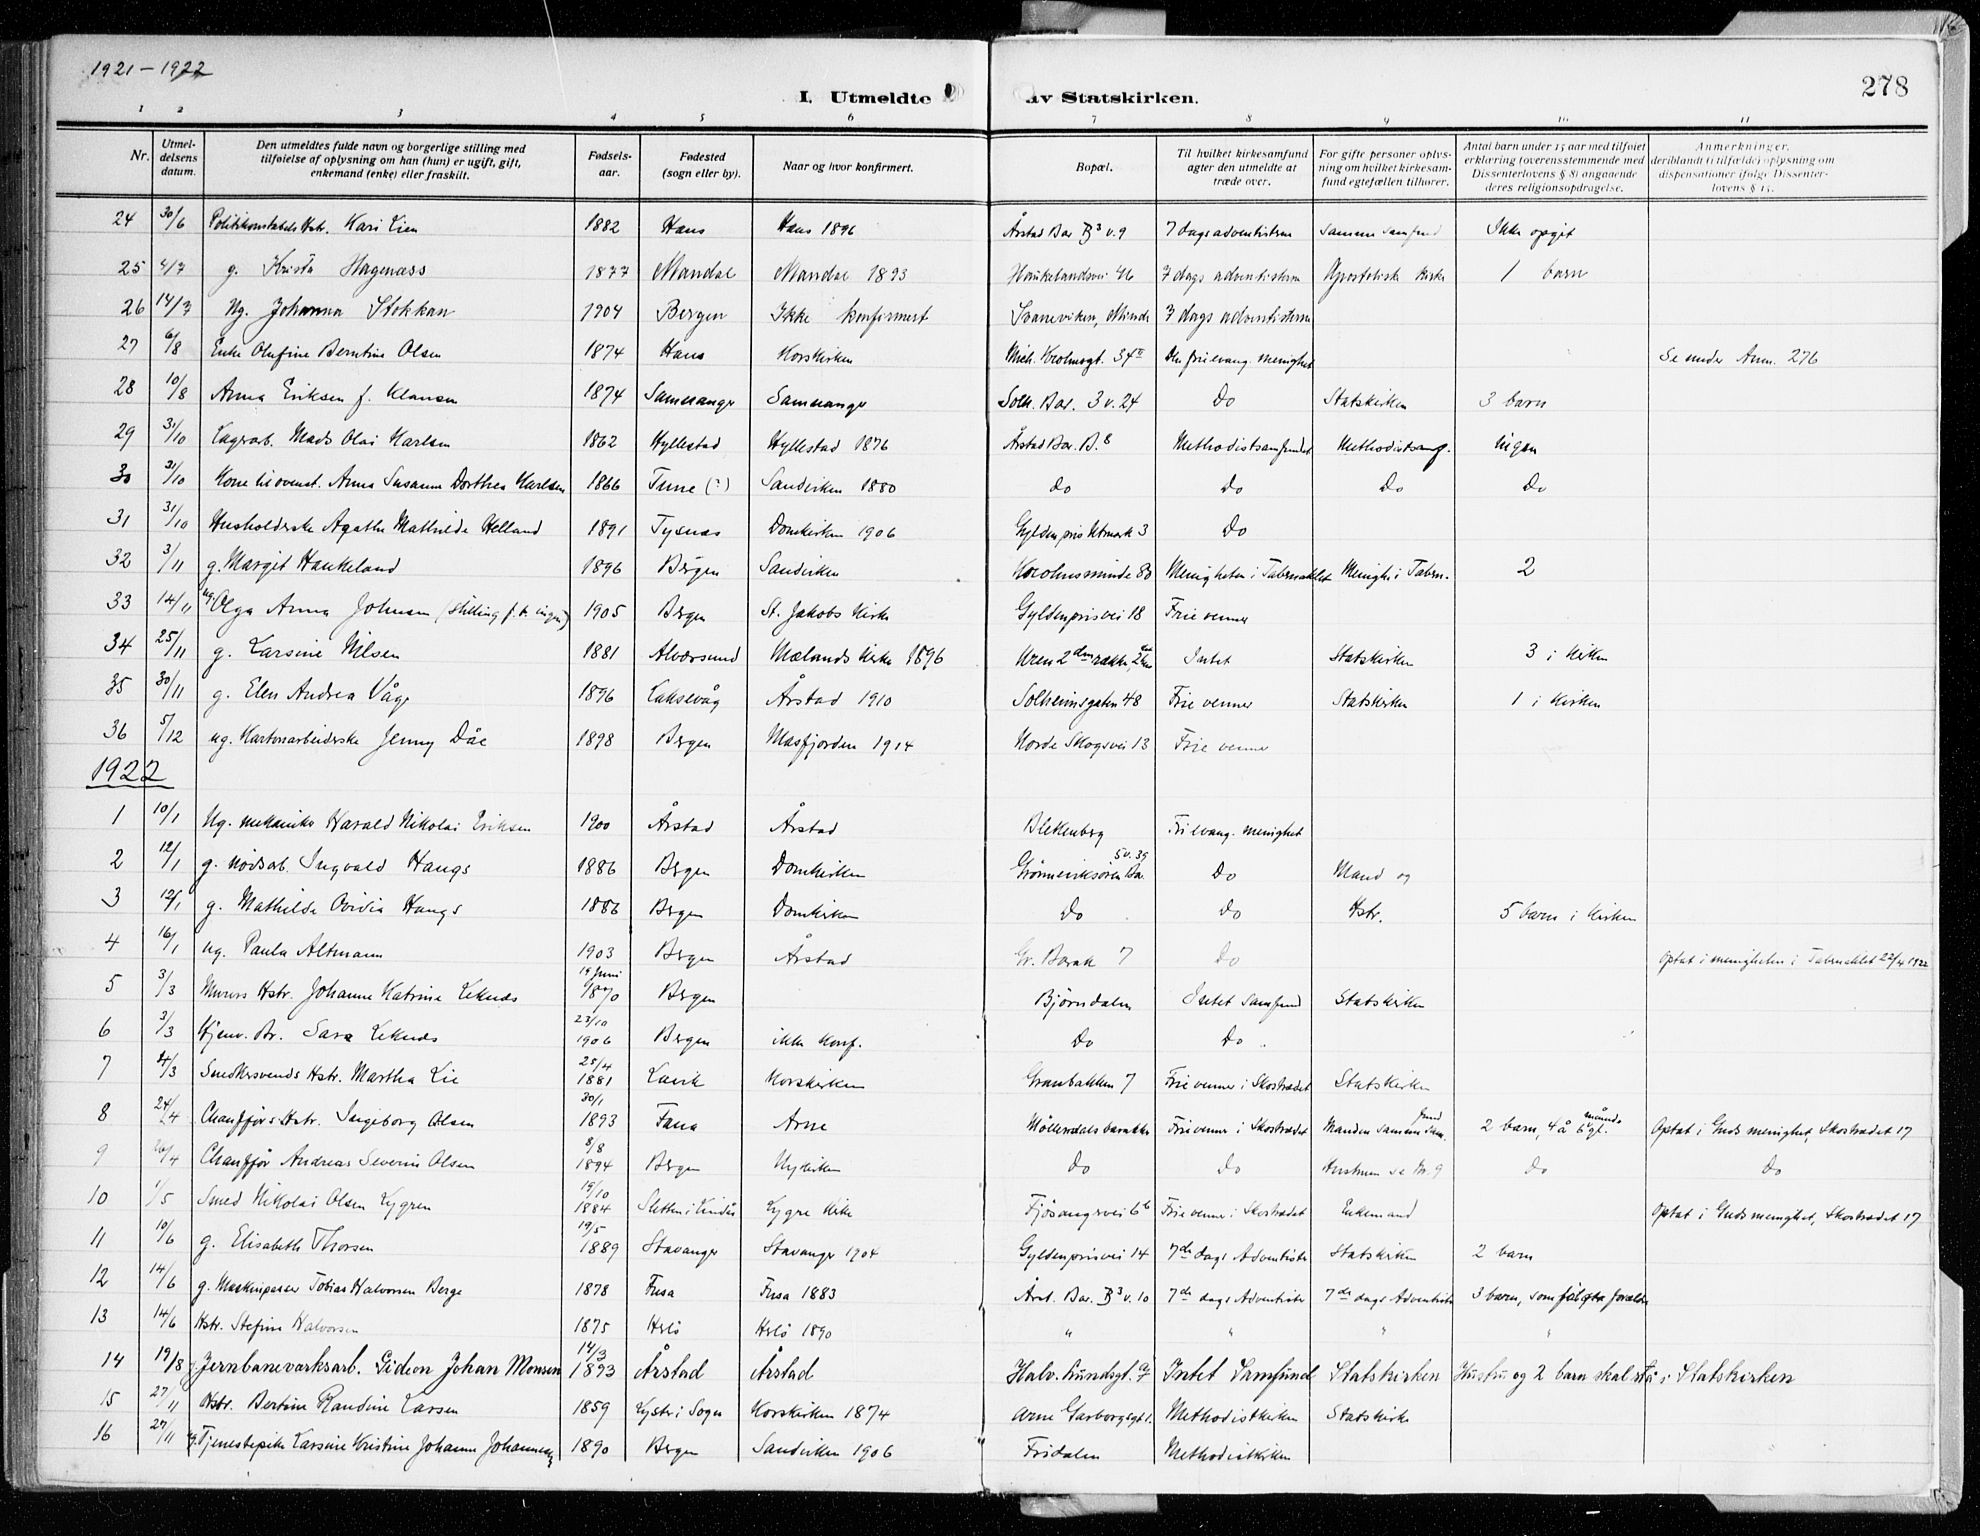 1921-1922
278
I. Utmeldte av Statskirken.
1 2 3 4 5 6 7 8 9 10 11
Nr. | Utmeldelsens datum. | Den utmeldtes fulde navn og borgerlige stilling med tilføielse af oplysning om han (hun) er ugift, gift, enkemand (enke) eller fraskilt. | Fødselsaar. | Fødested (sogn eller by). | Naar og hvor konfirmert. | Bopæl. | Til hvilket kirkesamfund agter den utmeldte at træde over. | For gifte personer oplysning om hvilket kirkesamfund egtefællen tilhører. | Antal barn under 15 aar med tilføiet erklæring (overensstemmende med Dissenterlovens § 8) angaaende deres religionsopdragelse. | Anmerkninger, deriblandt (i tilfælde) oplysning om dispensationer ifølge Dissenterlovens § 15.
24 30/6 Politikonstabels Hstr. Kari Lien 1882 Haus Haus 1896 Årstad Bar B3 v. 9 7 dags adventisterne Samme samfund Ikke opgit
25 4/7 g. Krista Hagenæss 1877 Mandal Mandal 1893 Haukelandsvei 46 7 dags adventisterne Apostolisk kirke 1 barn
26 14/7 Ug. Johanna Stokkan 1904 Bergen Ikke konfirmert Svaneviken, Minde 7 dags adventisterne
27 6/8 Enke Olufine Berntine Olsen 1874 Haus Korskirken Mich. Krohnsgt. 34 II Den frie evang. menighet Se under Anm. 276
28 10/8 Anna Eriksen f. Klausen 1874 Samnanger Samnanger Solh. Bar. 3 v. 24 Do Statskirken 3 barn
29 31/10 Lagerarb. Mads Olai Karlsen 1862 Hyllestad Hyllestad 1876 Årstad Bar. B.8 Methodistsamfundet Methodistsamf. Ingen
30 31/10 Kone til ovenst. Anna Susanne Dorthea Karlsen 1866 Tune (?) Sandviken 1880 do Do Do Do
31 31/10 Husholderske Agathe Mathilde Helland 1891 Tysnæs Domkirken 1906 Gyldenpris Utmark 3 Do
32 3/11 g. Margit Haukeland 1896 Bergen Sandviken Krohnsminde 80 Menigheten i Tabernaklet Menigh. i Tabern. 2
33 14/11 ug. Olga Anna Johnsen (Stilling f. t. ingen) 1905 Bergen St. Jakobs Kirke Gyldenprisvei 18 Frie venner
34 25/11 g. Larsine Nilsen 1881 Alversund Mælands kirke 1896 Uren 2den række, Intet Statskirken 3 i kirken
35 30/11 g. Elen Andrea Våge 1896 Laksevåg Årstad 1910 Solheimsgaten 48 Frie venner Statskirken 1 i kirken
36 5/12 ug. Kartonarbeiderske Jenny Dåe 1898 Bergen Masfjorden 1914 Nordre Skogsvei 13 Frie venner
1922
1 10/1 Ug. mekaniker Harald Nikolai Eriksen 1900 Årstad Årstad Blekenberg Fri evang. menighet
2 12/1 g. nødsarb. Ingvald Haugs 1886 Bergen Domkirken Grønneviksøren Ba. 5 v. 39 Do Mand og
3 12/1 g. Mathilde Ovidia Haugs 1886 Bergen Domkirken Do Do Hstr. 5 barn i kirken
4 16/1 ug. Paula Altmann 1903 Bergen Årstad Gr. Barak 7 Do Optat i menigheten i Tabernaklet 22/4 1922
5 3/3 Murers Hstr. Johanne Katrine Leknes 19 Juni 1870 Bergen Bjørndalen Intet Samfund Statskirken
6 3/3 Hjemv. Dr. Sara Leknes 23/10 1906 Bergen ikke konf. Do Do.
7 24/3 Smedsvends Hstr. Martha Lie 25/4 1881 Lavik Korskirken Granbakken 7 Frie venner i Skostrædet Statskirken
8 24/4 Chauffførs Hstr. Ingeborg Olsen 30/1 1893 Fana Arne Møllendals barakker Frie venner i Skostrædet Manden samme Sam.fund 2 barn, 4 å 6 månds. gl. Optat i Guds menighet, Skostrædet 17
9 26/4 Chauffør Andreas Severin Olsen 8/8 1894 Bergen Nykirken Do Do Hustruen se Nr. 9 Do Do
10 1/5 Smed Nikolai Olsen Lygren 19/10 1884 Sletten i Lindås Lygre Kirke Fjøsangervei 6 b Frie venner i Skostrædet Enkemand Optat i Guds menighet, Skostrædet 17
11 10/6 g. Elisabeth Thorsen 19/5 1889 Stavanger Stavanger 1904 Gyldenprisvei 14 7de dags Adventister Statskirken 2 barn
12 14/6 g. Maskinpasser Tobias Halvorsen Berge 1878 Fusa Fusa 1883 Årst. Bar. B3 v. 10 7de dags Adventister 7de dags Adventister 3 barn, som følger foræld.
13 14/6 Hstr. Stefine Halvorsen 1875 Herlø Herlø 1890 " " " "
14 19/8 g. Jernbaneverksarb. Gideon Johan Monsen 14/3 1893 Årstad Årstad Halv. Lundsgt. 9 Intet Samfund Statskirken Hustru og 2 barn skal stå i Statskirken
15 27/11 Hstr. Bertine Randine Larsen 1859 Lyster i Sogn Korskirken 1874 Arne Garborgsgt 1. Methodistkirken Statskirke
16 27/11 ug. Tjenestepike Larsine Kristine Johanne Johannesen 1890 Bergen Sandviken 1906 Fridalen Methodistkirken